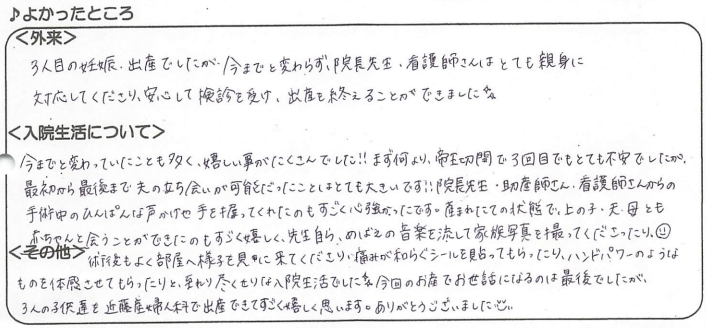 ♪よかったところ
＜外来＞
3人目の妊娠、出産でしたが、今までと変わらず、院長先生、看護師さんはとても親身に
対応してくださり、安心して検診を受け、出産を終えることができました
＜入院生活について＞
今までと変わっていたことも多く、嬉しい事がたくさんでした!! まず何より、帝王切開で3回目でもとても不安でしたが、
最初から最後まで夫の立ち会いが可能だったことはとても大きいです!! 院長先生・助産師さん、看護師さんからの
手術中のひんぱんな声かけや手を握ってくれたのもすごく心強かったです。産まれたての状態で、上の子・夫・母とも
赤ちゃんと会うことができたのもすごく嬉しく、先生自ら、めばえの音楽を流して家族写真を撮ってくださったり、
＜その他＞ 術後もよく部屋へ様子を見に来てくださり、痛みが和らぐシールを貼ってもらったり、ハンドパワーのような
ものを体感させてもらったりと、至れり尽くせりな入院生活でした 今回のお産でお世話になるのは最後でしたが、
3人の子供達を近藤産婦人科で出産できてすごく嬉しく思います。ありがとうございました